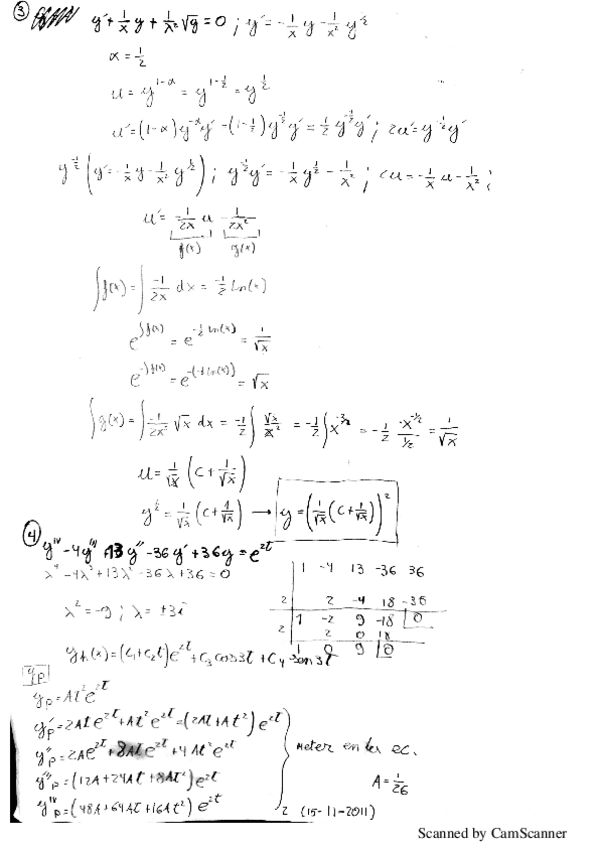 ③ y' + 1/x y + 1/x² √y = 0 ; y' = -1/x y - 1/x² y^1/2
α = 1/2
u = y^1-α = y^1-1/2 = y^1/2
u' = (1-α) y^-α y' = (1-1/2) y^-1/2 y' = 1/2 y^-1/2 y' ; 2u' = y^-1/2 y'
y^-1/2 (y' = -1/x y - 1/x² y^1/2) ; y^-1/2 y' = -1/x y^1/2 - 1/x² ; 2u' = -1/x u - 1/x² ;
u' = -1/2x u - 1/2x²
f(x) g(x)
∫f(x) = ∫ -1/2x dx = -1/2 Ln(x)
e^∫f(x) = e^-1/2 ln(x) = 1/√x
e^-∫f(x) = e^-(-1/2 ln(x)) = √x
∫g(x) = ∫ -1/2x² √x dx = -1/2 ∫ √x/x² = -1/2 ∫ x^-3/2 = -1/2 · -x^-1/2 / 1/2 = 1/√x
u = 1/√x (C + 1/√x)
y^1/2 = 1/√x (C + 1/√x) → y = (1/√x (C + 1/√x))²
④ y^IV - 4y''' + 13y'' - 36y' + 36y = e^2t
λ⁴ - 4λ³ + 13λ² - 36λ + 36 = 0
1 -4 13 -36 36
2 2 -4 18 -36
1 -2 9 -18 0
2 2 0 18
1 0 9 0
λ² = -9 ; λ = ±3i
yh(x) = (C₁ + C₂t) e^2t + C₃ cos3t + C₄ sen3t
yp
yp = At² e^2t
y'p = 2At e^2t + 2At² e^2t = (2At + 2At²) e^2t
y''p = 2Ae^2t + 8At e^2t + 4At² e^2t
y'''p = (12A + 24At + 8At²) e^2t
y^IVp = (48A + 64At + 16At²) e^2t
meter en la ec.
A = 1/26
2 (15-11-2011)
Scanned by CamScanner